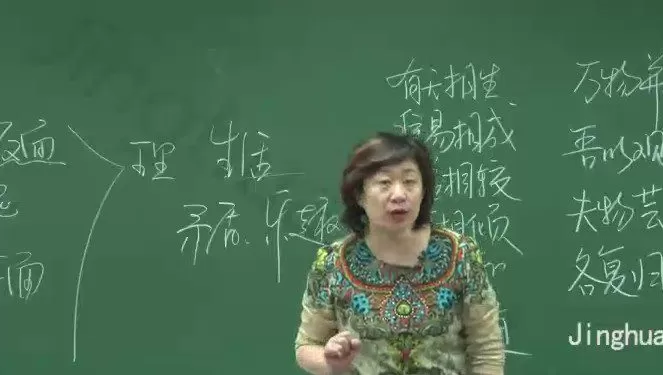 反面
面
理 生活
矛盾、乐趣
有无相生
难易相成
相较
相倾
万物并
吾以观
夫物芸
各复归
Jinghua